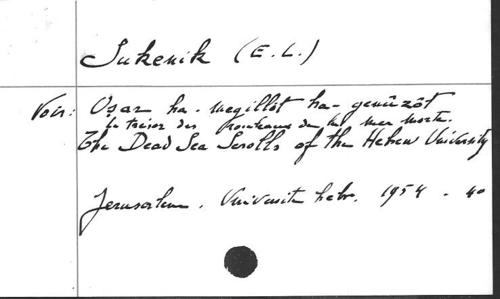 Sukenik (E.L.)
Voir: Oṣar ha-megillōt ha-genūzōt
Le trésor des rouleaux de la mer morte.
The Dead Sea Scrolls of the Hebrew University
Jerusalem. Université hebr. 1954. 4o